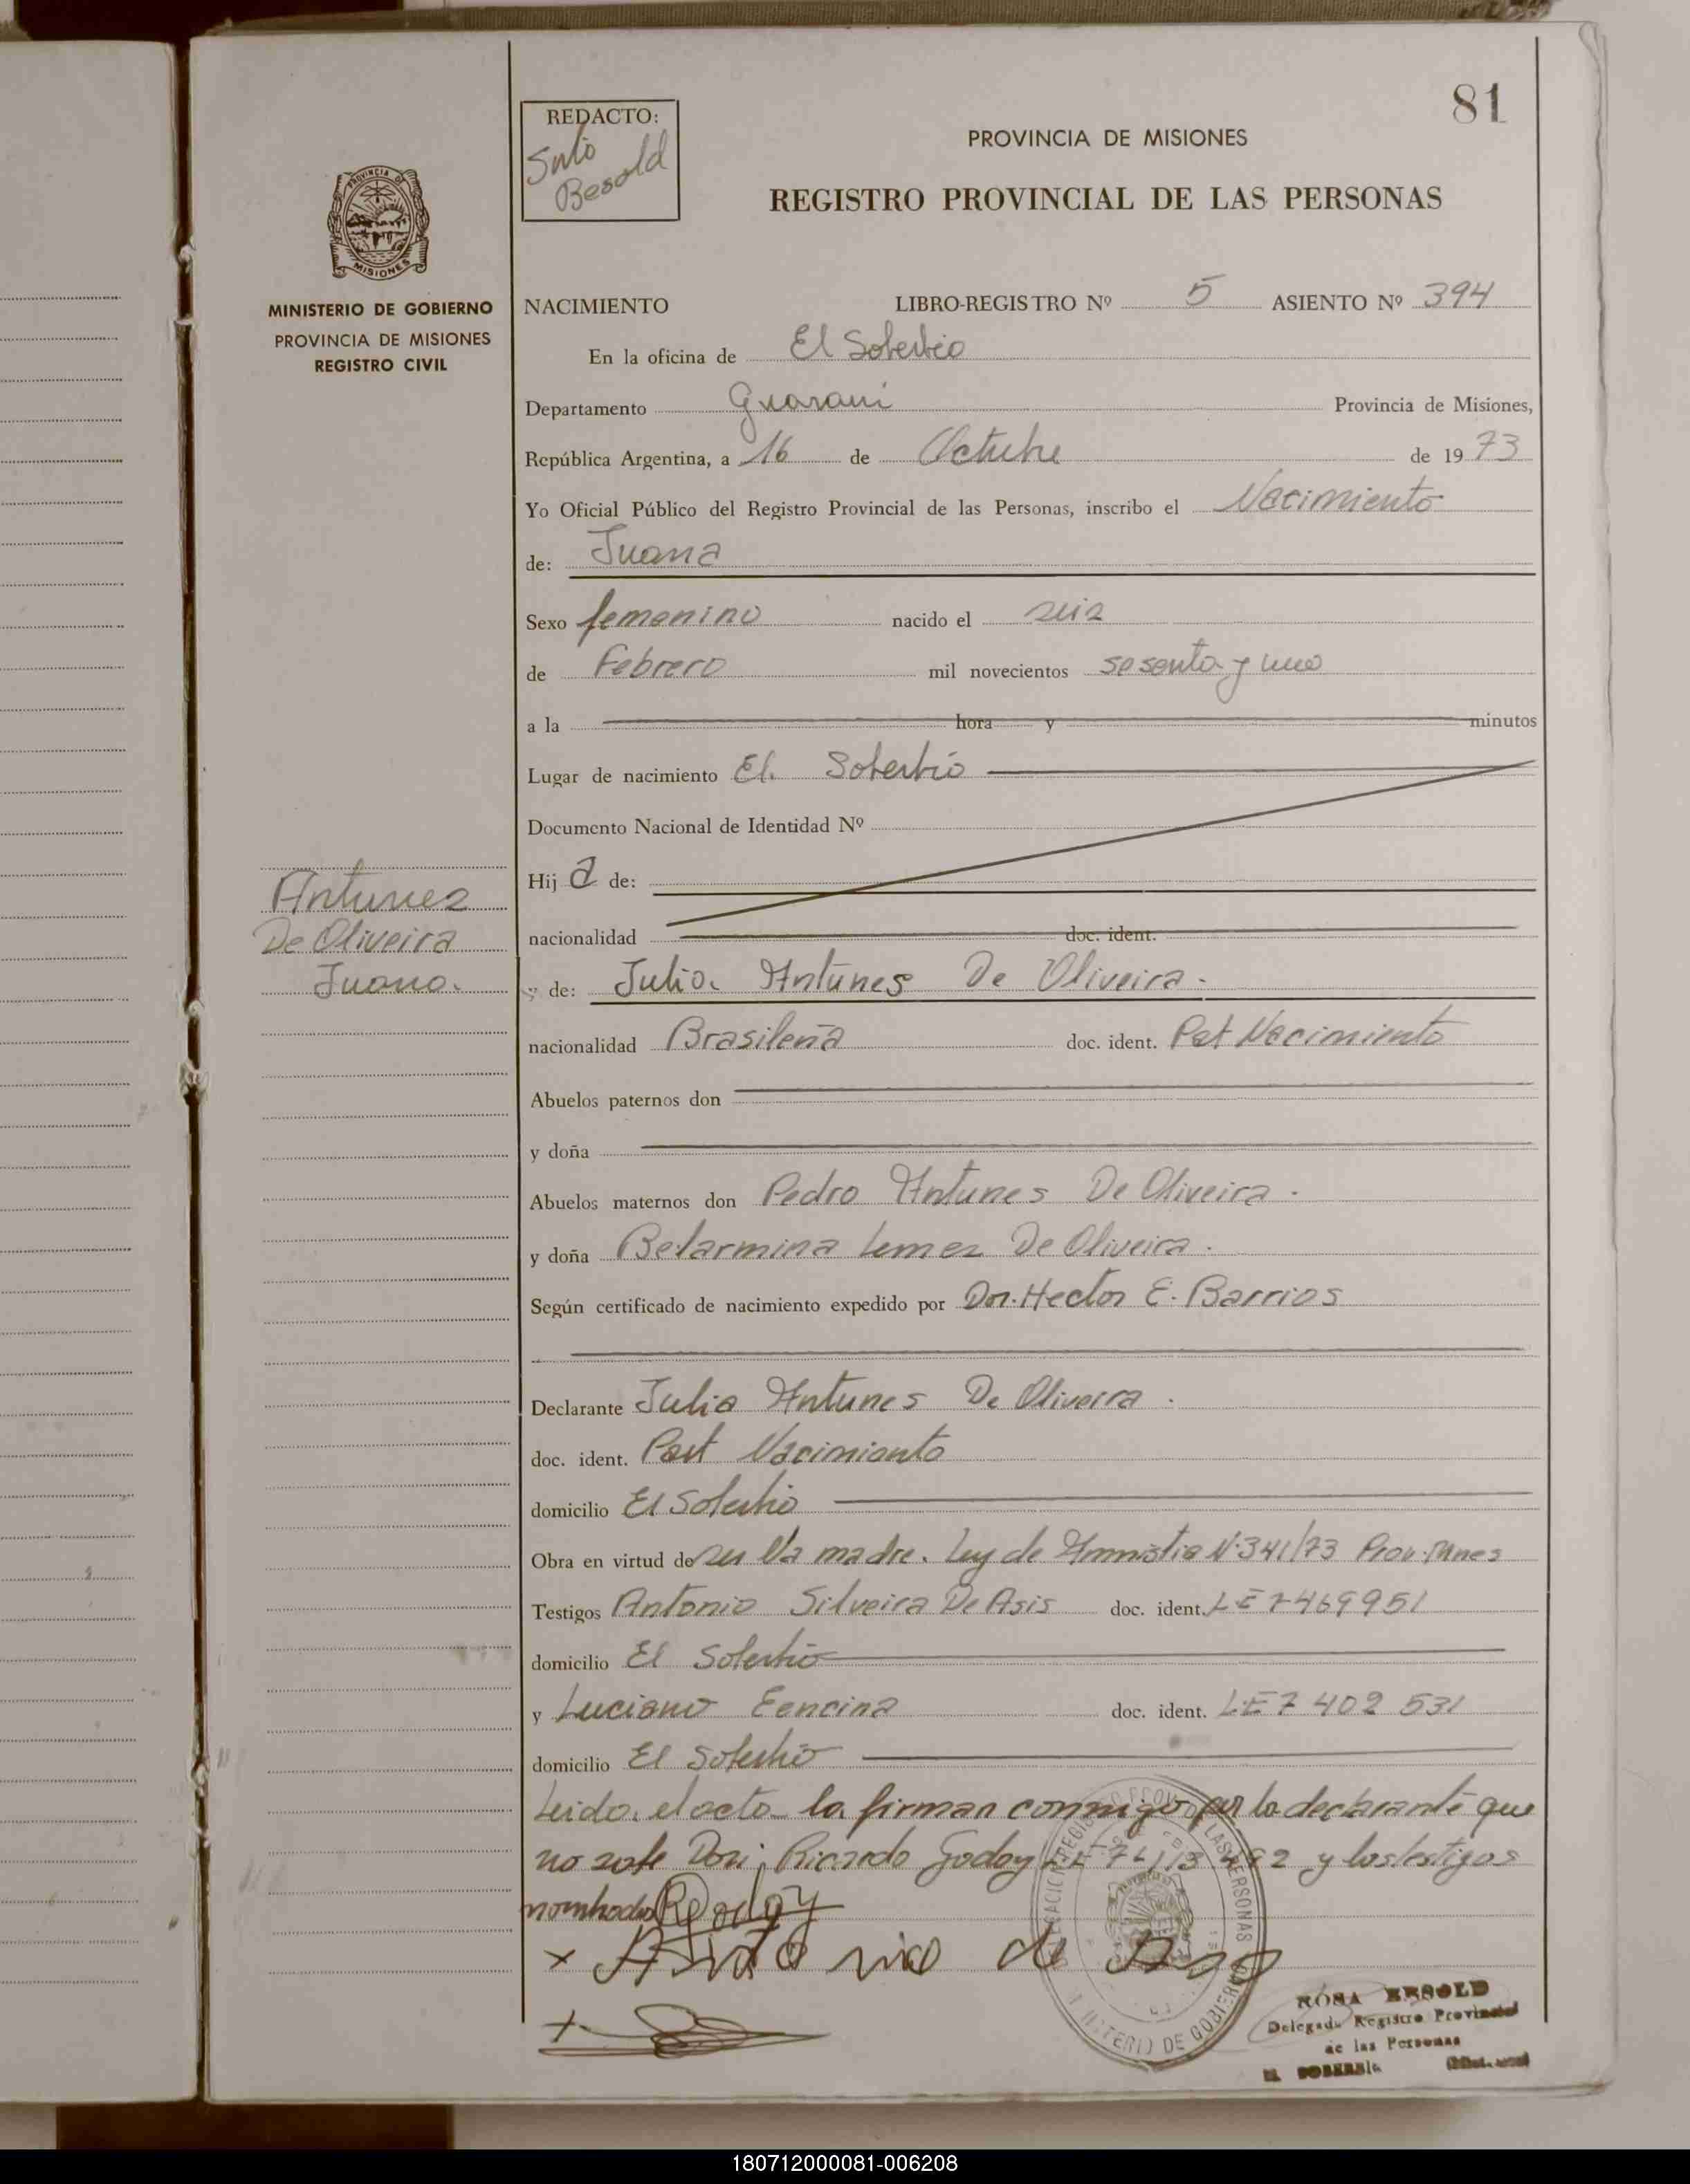 81
REDACTO:
Besold
PROVINCIA DE MISIONES
REGISTRO PROVINCIAL DE LAS PERSONAS
PROVINCIA DE
MISIONES
MINISTERIO DE GOBIERNO
PROVINCIA DE MISIONES
REGISTRO CIVIL
NACIMIENTO LIBRO-REGISTRO Nº 5 ASIENTO Nº 394
En la oficina de El Soberbio
Departamento Guarani Provincia de Misiones,
República Argentina, a 16 de Octubre de 1973
Yo Oficial Público del Registro Provincial de las Personas, inscribo el Nacimiento
de: Juana
Sexo femenino nacido el seis
de Febrero mil novecientos sesenta y uno
a la hora y minutos
Lugar de nacimiento El Soberbio
Documento Nacional de Identidad Nº
Hija de:
nacionalidad doc. ident.
Antunes
De Oliveira
Juana.
y de: Julia Antunes De Oliveira.
nacionalidad Brasileña doc. ident. Part Nacimiento
Abuelos paternos don
y doña
Abuelos maternos don Pedro Antunes De Oliveira.
y doña Belarmina Lemes De Oliveira.
Según certificado de nacimiento expedido por Don. Hector E. Barrios
Declarante Julia Antunes De Oliveira.
doc. ident. Part Nacimiento
domicilio El Soberbio
Obra en virtud de ser la madre. Ley de Amnistia Nº 341/73 Prov. Mnes
Testigos Antonio Silveira De Asis doc. ident. LE 7469951
domicilio El Soberbio
y Luciano Eencina doc. ident. LE 7 402 531
domicilio El Soberbio
Leido el acta la firman conmigo por la declarante que
no sabe Don: Ricardo Godoy y los testigos
nombrados RGodoy
x Antonio de
x
ROSA BESOLD
Delegada Registro Provincial
de las Personas
EL SOBERBIO
180712000081-006208